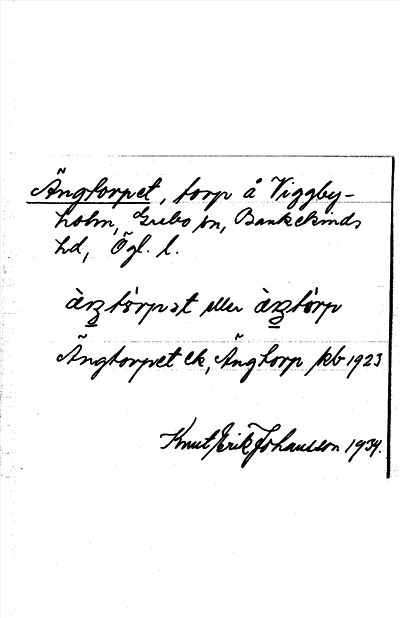 Ängtorpet, torp å Viggby-
holm, Grebo sn, Bankekinds
hd, Ögl. l.
àŋtòrpət eller àŋtòrp
Ängtorpet ek, Ängtorp kb 1923
Knut Erik Johansson 1934.